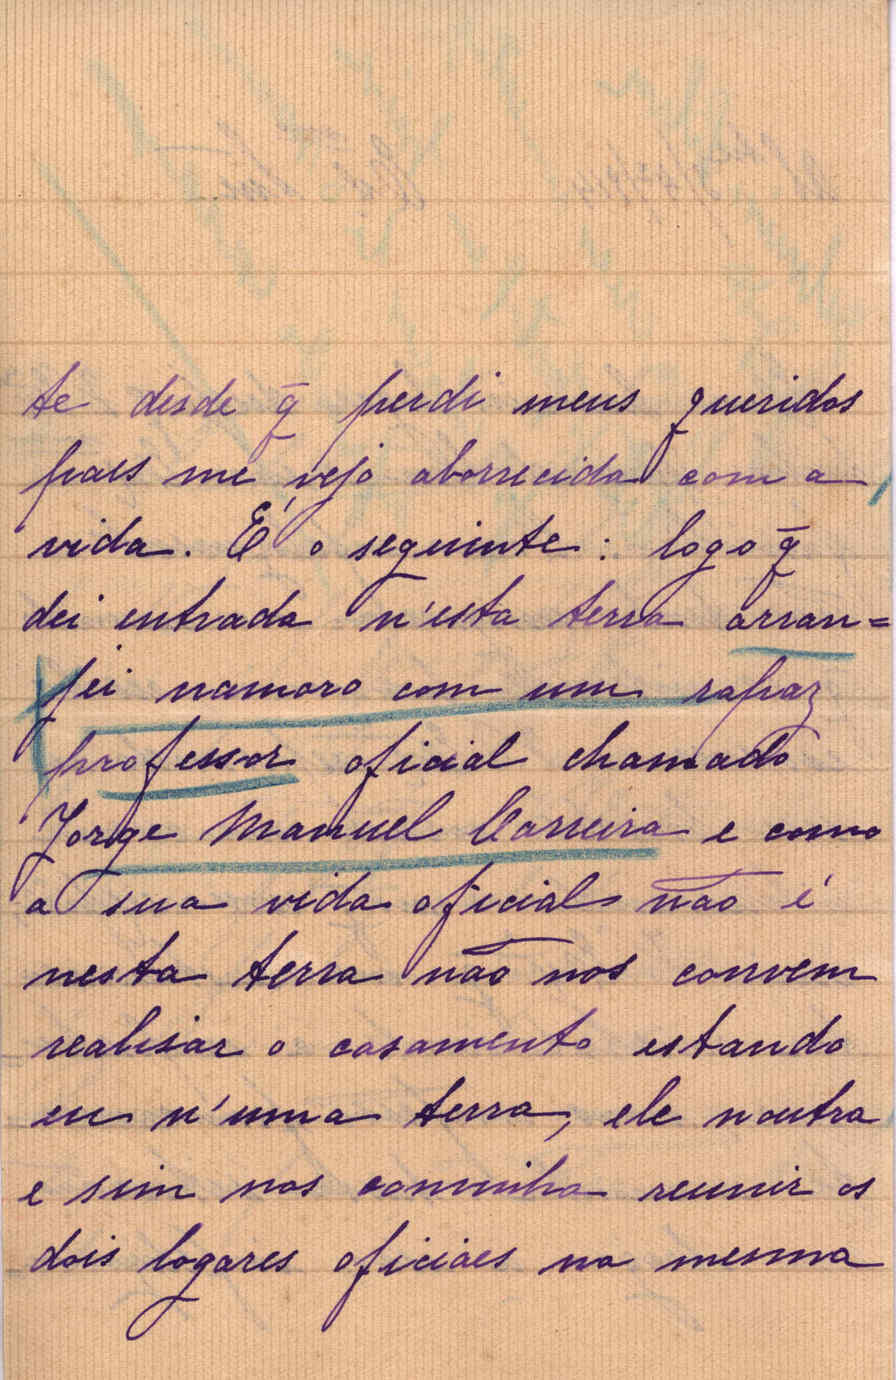 te desde q̄ perdi meus queridos
paes me vejo aborrecida com a
vida. É o seguinte: logo q̄
dei entrada n'esta terra arran=
jei namoro com um rapaz
professor oficial chamado
Jorge Manuel Carreira e como
a sua vida oficial não é
nesta terra não nos convem
realisar o casamento estando
eu n'uma terra, ele noutra
e sim nos convinha reunir os
dois logares oficiaes na mesma